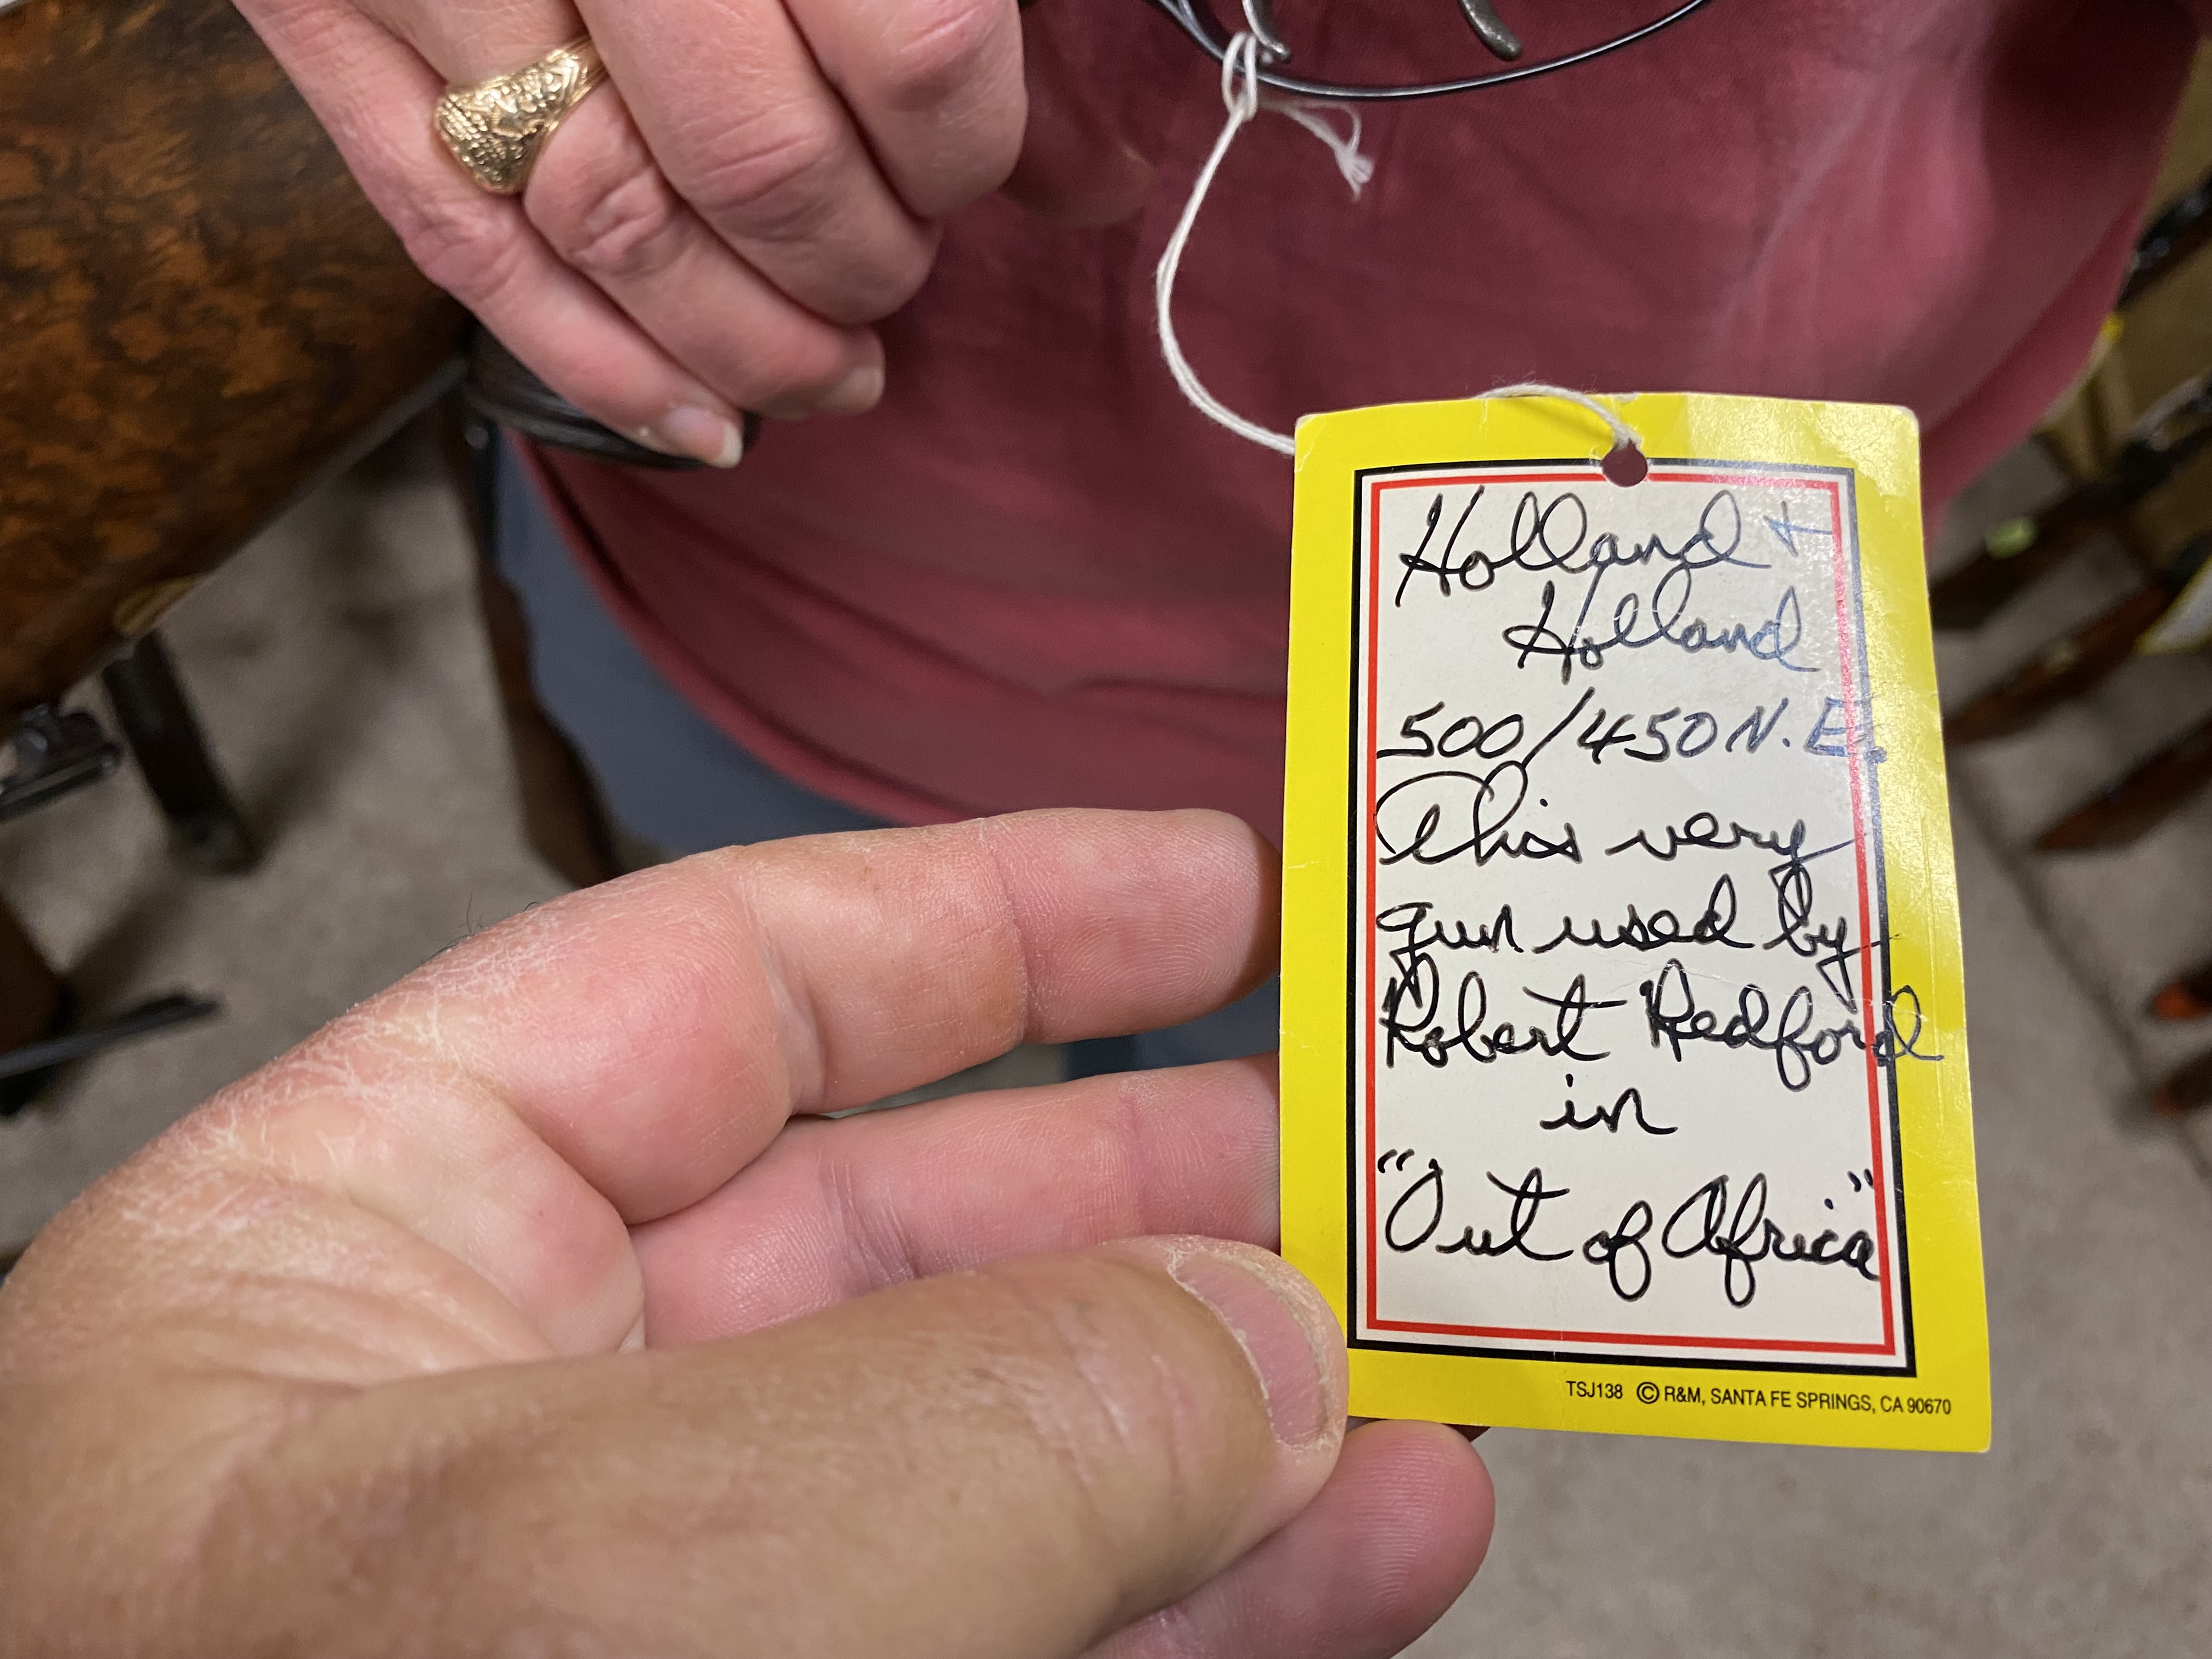 Holland +
Holland
500/450 N.E.
This very
gun used by
Robert Redford
in
"Out of Africa"
TSJ138 © R&M, SANTA FE SPRINGS, CA 90670